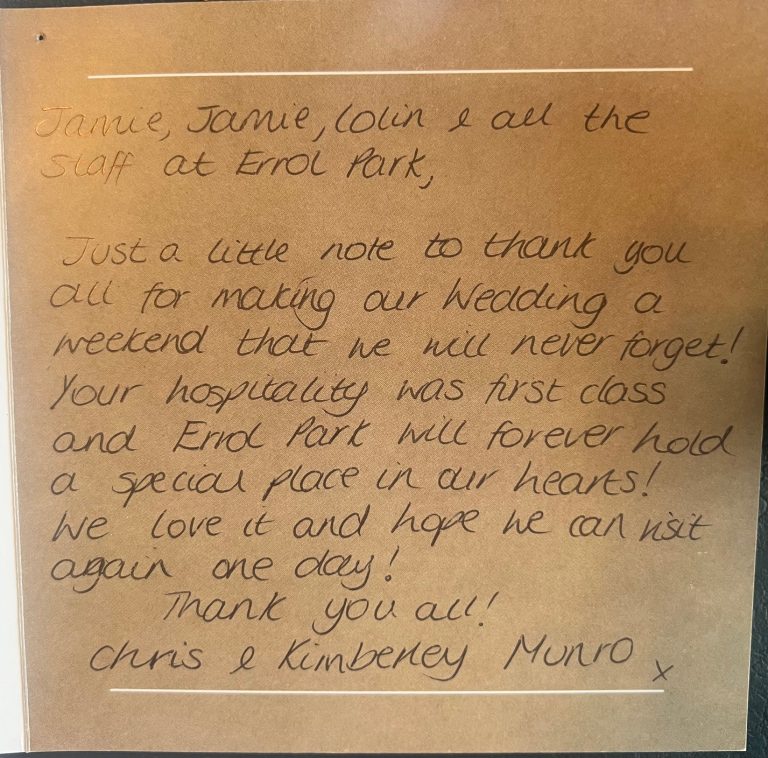 Jamie, Jamie, Colin & all the
staff at Errol Park,
Just a little note to thank you
all for making our Wedding a
weekend that we will never forget!
Your hospitality was first class
and Errol Park will forever hold
a special place in our hearts!
We love it and hope we can visit
again one day!
Thank you all!
Chris & Kimberley Munro x